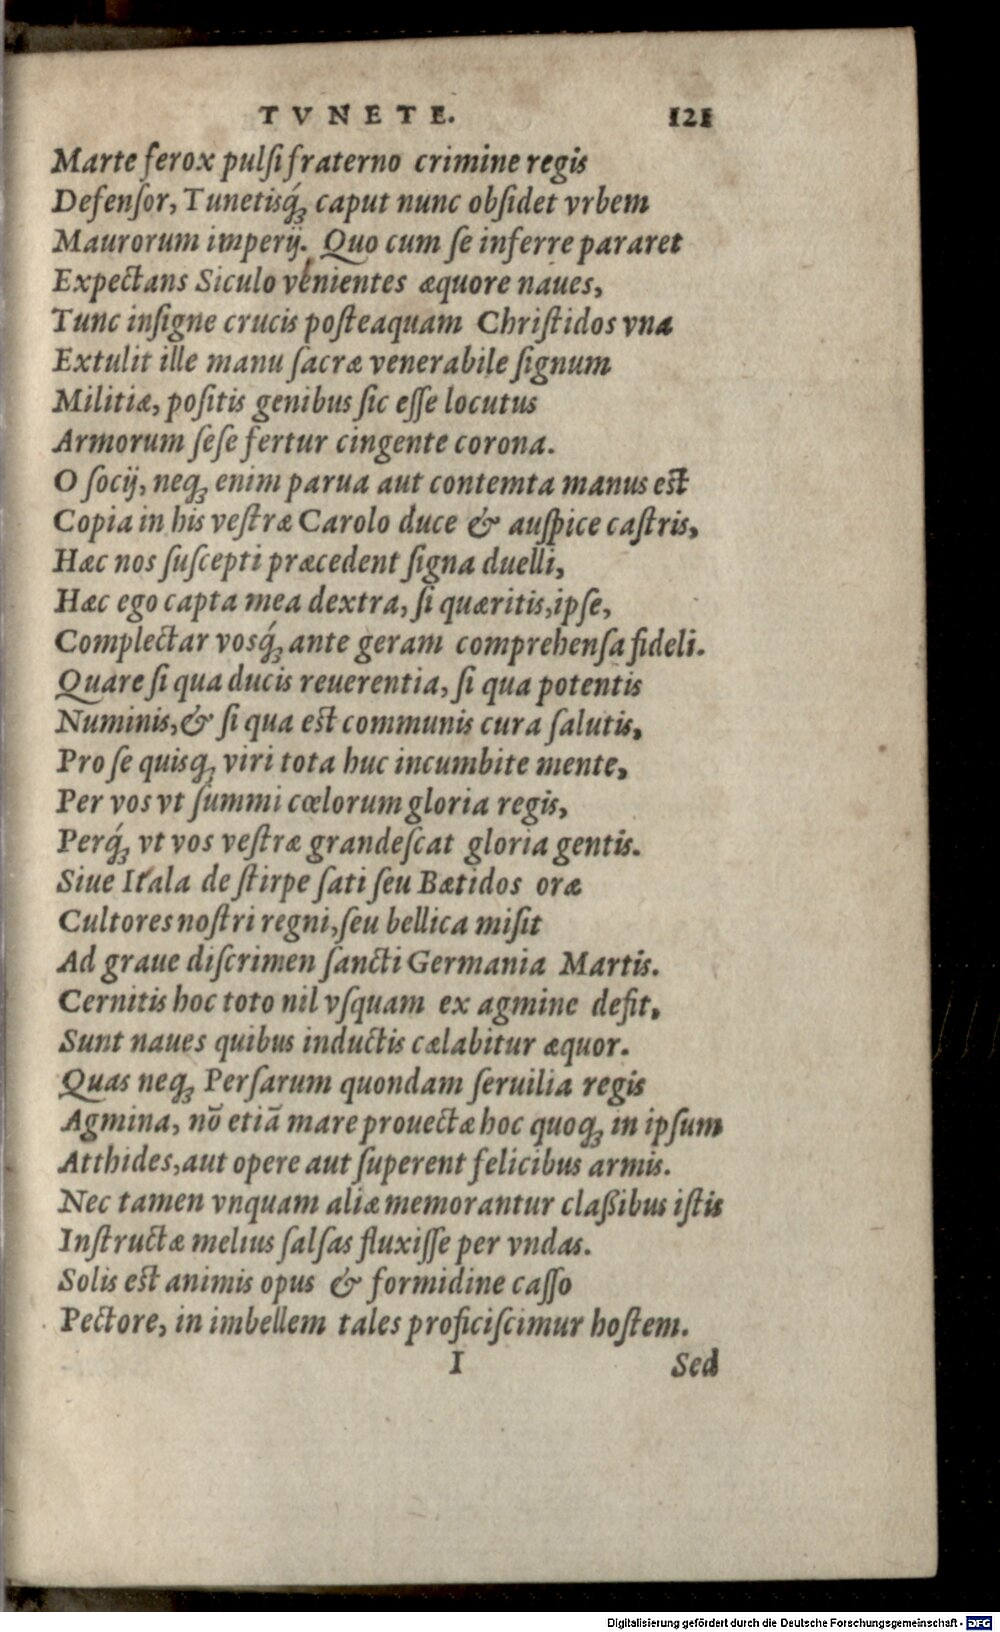 TVNETE. 121
Marte ferox pulſi fraterno crimine regis
Defenſor, Tunetisq́ꝫ caput nunc obſidet vrbem
Maurorum imperij. Quo cum ſe inferre pararet
Expectans Siculo venientes æquore naues,
Tunc inſigne crucis poſteaquam Chriſtidos vna
Extulit ille manu ſacræ venerabile ſignum
Militiæ, poſitis genibus ſic eſſe locutus
Armorum ſeſe fertur cingente corona.
O ſocij, neqꝫ enim parua aut contemta manus eſt
Copia in his veſtræ Carolo duce & auſpice caſtris,
Hæc nos ſuſcepti præcedent ſigna duelli,
Hæc ego capta mea dextra, ſi quæritis, ipſe,
Complectar vosq́ꝫ ante geram comprehenſa fideli.
Quare ſi qua ducis reuerentia, ſi qua potentis
Numinis, & ſi qua eſt communis cura ſalutis,
Pro ſe quisqꝫ viri tota huc incumbite mente,
Per vos vt ſummi cœlorum gloria regis,
Perq́ꝫ vt vos veſtræ grandeſcat gloria gentis.
Siue Itala de ſtirpe ſati ſeu Bætidos oræ
Cultores noſtri regni, ſeu bellica miſit
Ad graue diſcrimen ſancti Germania Martis.
Cernitis hoc toto nil vſquam ex agmine defit,
Sunt naues quibus inductis cælabitur æquor.
Quas neqꝫ Perſarum quondam ſeruilia regis
Agmina, nō etiā mare prouectæ hoc quoqꝫ in ipſum
Atthides, aut opere aut ſuperent felicibus armis.
Nec tamen vnquam aliæ memorantur claßibus iſtis
Inſtructæ melius ſalſas fluxiſſe per vndas.
Solis eſt animis opus & formidine caſſo
Pectore, in imbellem tales proficiſcimur hoſtem.
I Sed
Digitalisierung gefördert durch die Deutsche Forschungsgemeinschaft - DFG